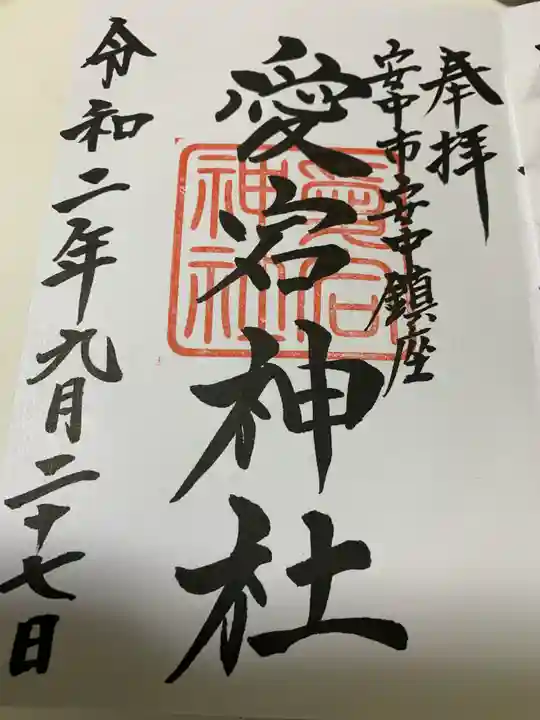 奉拝
安中市安中鎮座
愛宕神社
愛宕
神社
令和二年九月二十七日